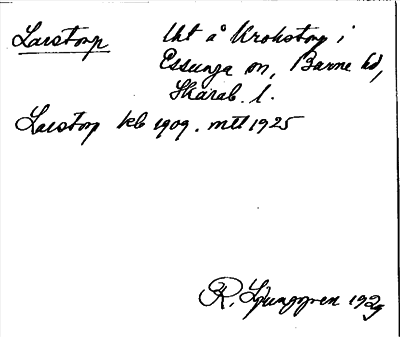 Larstorp Uht å Krokstorp i
Essunga sn, Barne hd,
Skarab. l.
Larstorp kb 1909. mtl 1925
R. Ljunggren 1925